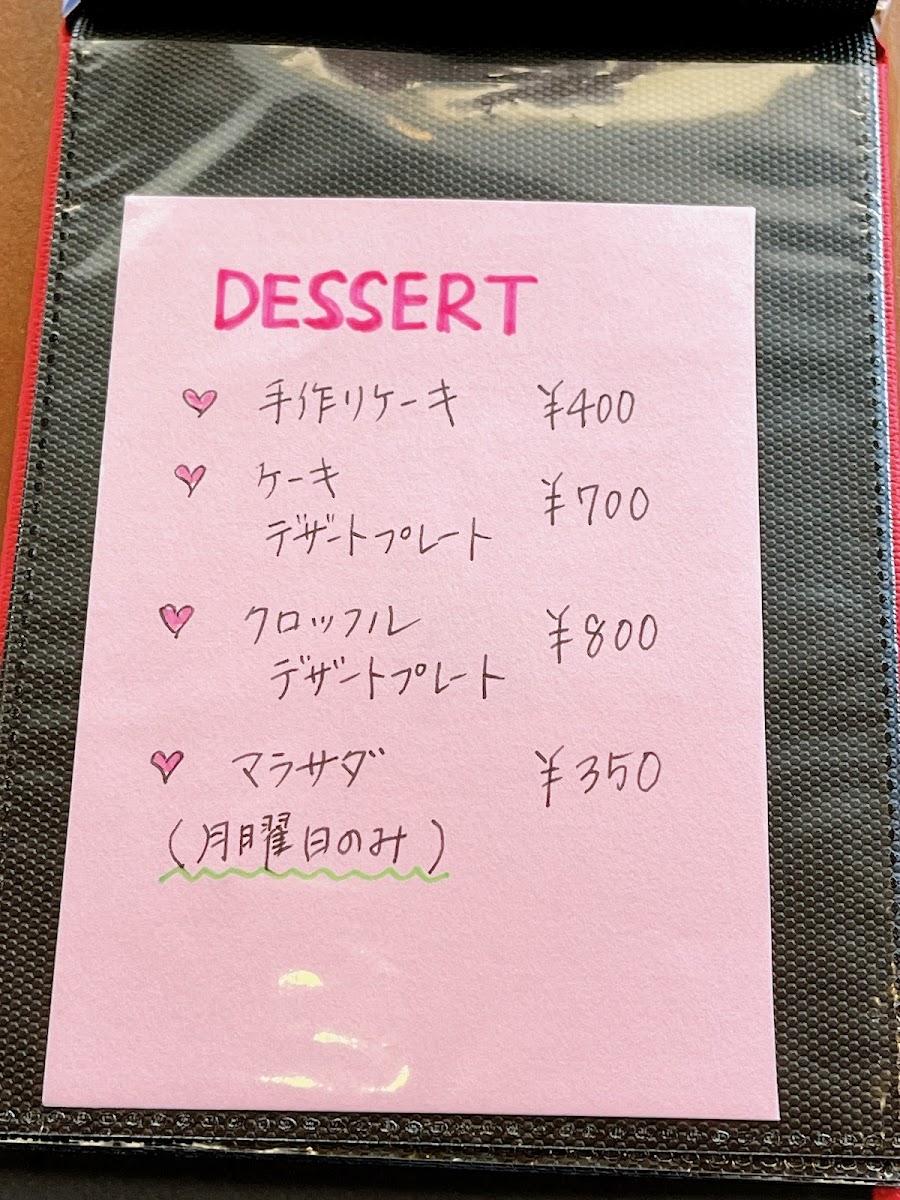 DESSERT
手作りケーキ ¥400
ケーキ
デザートプレート ¥700
クロッフル
デザートプレート ¥800
マラサダ ¥350
(月曜日のみ)